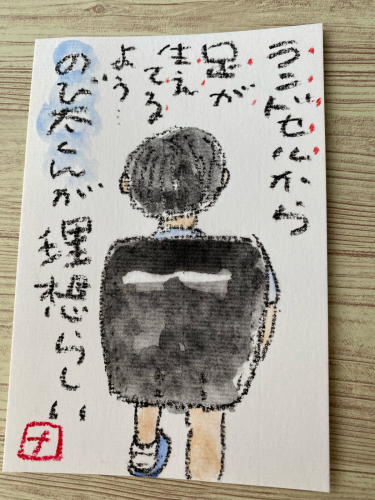 ランドセルから
足が
生えてる
よう
のび太くんが理想らしい
ナ